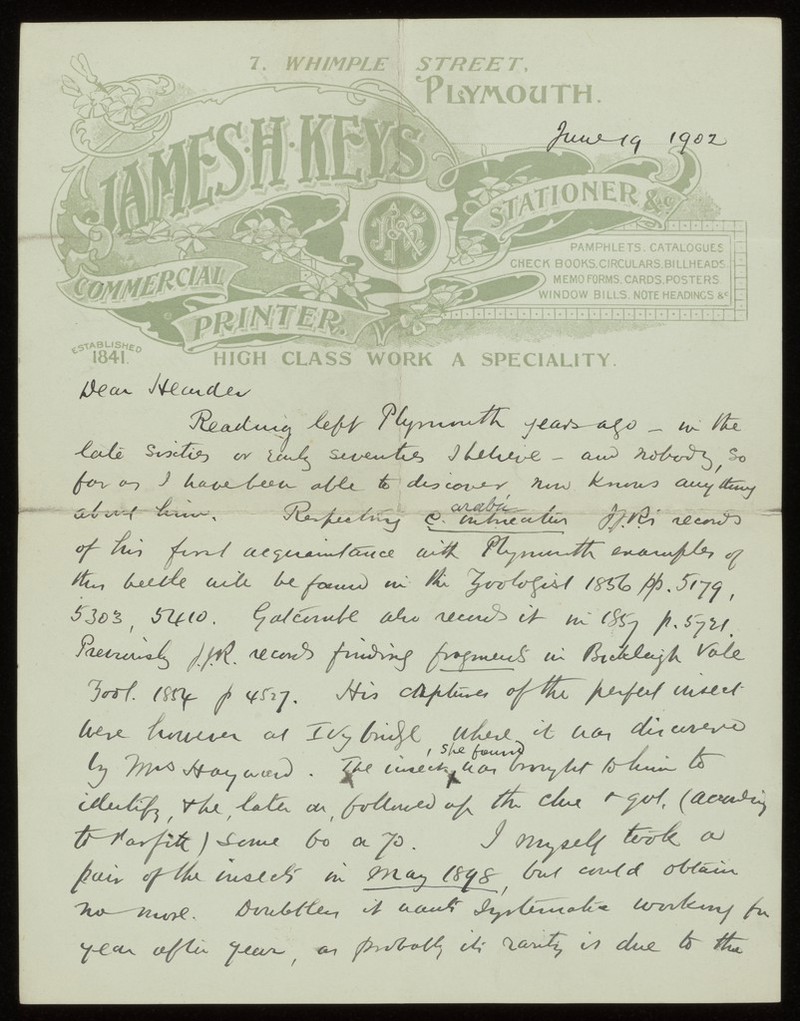 7. WHIMPLE STREET,
PLYMOUTH.
June 19 1902
JAMES·H·KEYS
STATIONER &c
PAMPHLETS. CATALOGUES
CHECK BOOKS, CIRCULARS, BILLHEADS.
MEMO FORMS. CARDS, POSTERS
WINDOW BILLS. NOTE HEADINGS &c
COMMERCIAL
PRINTER.
ESTABLISHED
1841.
HIGH CLASS WORK A SPECIALITY.
Dear Hearder
Reading left Plymouth years ago – in the
late sixties or early seventies I believe – and nobody, so
far as I have been able to discover now knows anything
about him. Respecting C. intricatus J.J.R's records
of his first acquaintance with Plymouth examples of
this beetle will be found in the Zoologist 1856 pp. 5179,
5303, 5410. Gatcombe also records it in 1857 p. 5721.
Previously J.J.R. records finding fragments in Bickleigh Vale
Zool. 1854 p 4527. His captures of the perfect insect
were however at Ivybridge, where it was discovered
by Mrs Hayward. The insect, she found was brought to him to
identify, & he, later on, followed up the clue & got, (according
to Parfitt) some 60 or 70. I myself took a
pair of the insects in May 1898, but could obtain
no more. Doubtless it wants systematic working for
year after year, as probably its rarity is due to the